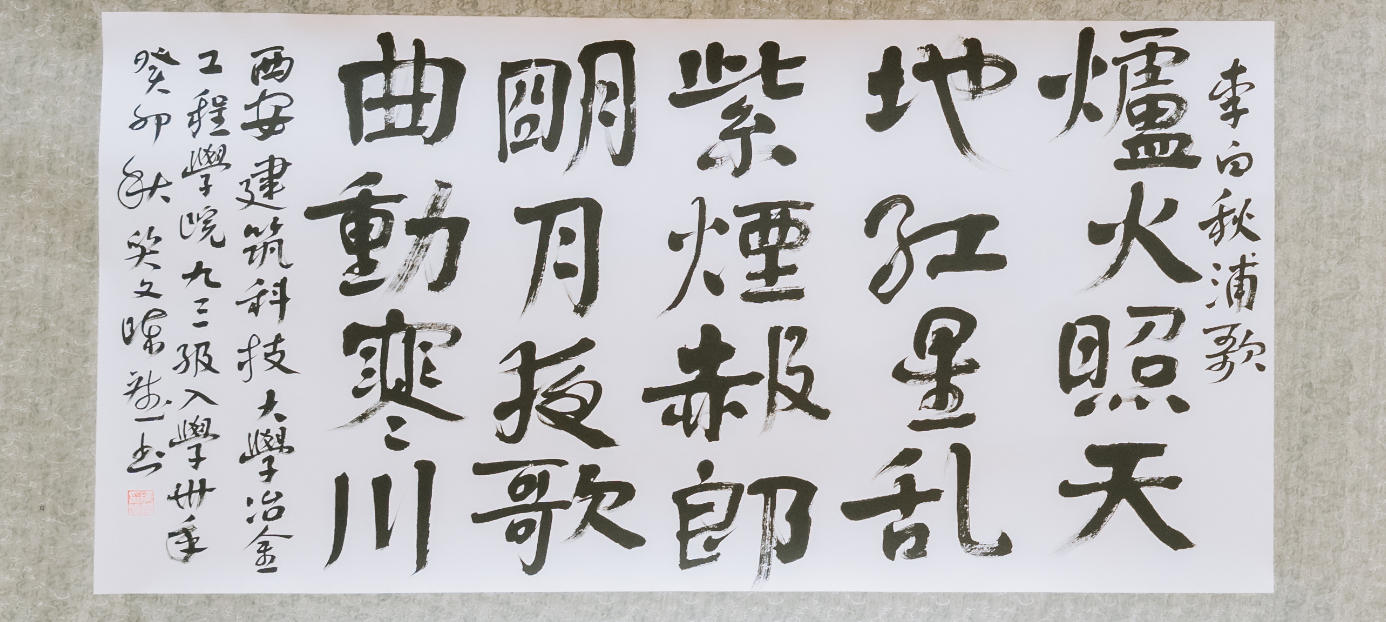 李白秋浦歌
爐火照天
地红星乱
紫煙赧郎
朙月夜歌
曲動寒川
西安建筑科技大學冶金
工程學院九三级入學卅年
癸卯秋文陳书